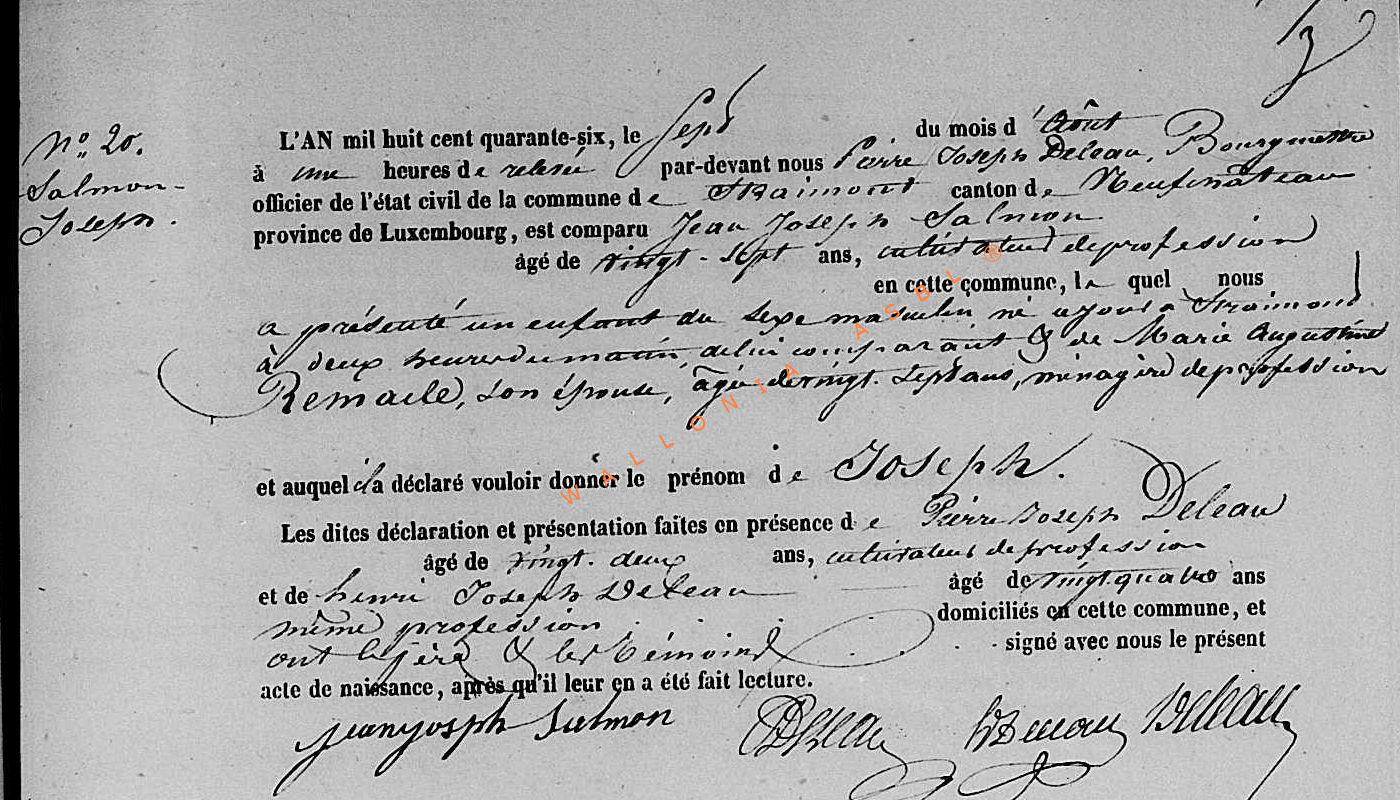 3
N° 20.
Salmon-
Joseph.
L'AN mil huit cent quarante-six, le Sept du mois d'Août
à une heures de relevée par-devant nous Pierre Joseph Deleau, Bourgmestre
officier de l'état civil de la commune de Straimont canton de Neufchâteau
province de Luxembourg, est comparu Jean Joseph Salmon
âgé de vingt-sept ans, cultivateur de profession
en cette commune, le quel nous
a présenté un enfant du sexe masculin né à Straimont
à deux heures du matin, de lui comparant & de Marie Augustine
Remacle, son épouse, âgée de vingt-sept ans, ménagère de profession
et auquel il a déclaré vouloir donner le prénom de Joseph.
Les dites déclaration et présentation faites en présence de Pierre Joseph Deleau
âgé de vingt-deux ans, cultivateur de profession
et de henri Joseph Deleau âgé de vingt quatre ans
même profession domiciliés en cette commune, et
ont le père & les témoins signé avec nous le présent
acte de naissance, après qu'il leur en a été fait lecture.
jean joseph Salmon Deleau Deleau
WALLONIA ASBL ®